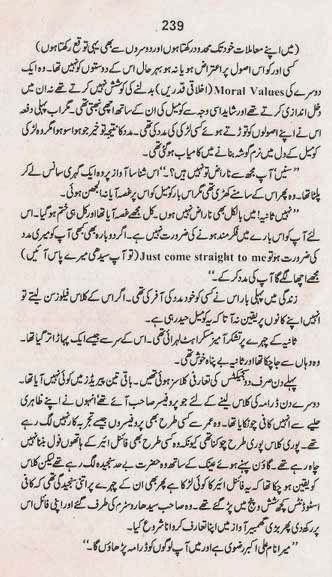 239
(میں اپنے معاملات خود تک محدود رکھتا ہوں اور دوسروں سے بھی یہی توقع رکھتا ہوں)
کسی اور کو اس اصول پر اعتراض ہو یا نہ ہو بہر حال اس کے دوستوں کو نہیں تھا۔ وہ ایک
دوسرے کی Moral Values (اخلاقی قدریں) بدلنے کی کوشش نہیں کرتے تھے نہ ان میں
دخل اندازی کرتے تھے اور شاید اسی وجہ سے کومیل کی ان کے ساتھ اچھی نبھتی تھی۔ مگر اب پہلی دفعہ
اس نے اپنے اصولوں کو توڑتے ہوئے کسی لڑکی کی مدد کی تھی۔ مدد کا نتیجہ تو خیر جو ہوا سو ہوا مگر وہ لڑکی
کومیل کے دل میں نرم گوشہ بنانے میں کامیاب ہو گئی تھی۔
"سنیں آپ مجھ سے ناراض تو نہیں ہیں؟" اس شناسا آواز پر وہ ایک گہری سانس لے کر
پلٹا تھا۔ وہ پھر اس کے سامنے کھڑی تھی مگر اس بار کومیل کو اس پر غصہ آیا نہ الجھن ہوئی۔
"نہیں ثانیہ! میں بالکل بھی ناراض نہیں ہوں۔ کل مجھے غصہ آیا تھا اور کل ہی ختم ہو گیا۔ اس
لئے آپ کو اس بارے میں فکرمند ہونے کی ضرورت نہیں ہے۔ اگر دوبارہ بھی کبھی آپ کو میری مدد
کی ضرورت ہو تو Just come straight to me (تو آپ سیدھی میرے پاس آئیں)
مجھے اچھا لگے گا آپ کی مدد کر کے۔"
زندگی میں پہلی بار اس نے کسی کو خود مدد کی آفر کی تھی۔ اگر اس کے کلاس فیلوز سن لیتے تو
انہیں اپنے کانوں پر یقین نہ آتا کہ یہ کومیل حیدر ہی ہے۔
ثانیہ کے چہرے پر تشکر آمیز مسکراہٹ لہرائی تھی۔ اس کے سر سے جیسے ایک پہاڑ اتر گیا تھا۔
وہ وہاں سے جا چکا تھا اور ثانیہ بے پناہ خوش تھی۔
پہلے دن صرف دو سبجیکٹس کی تعارفی کلاسز ہوئی تھیں۔ باقی تین پیریڈز میں کوئی نہیں آیا تھا۔
دوسرے دن ڈرامہ کی کلاس لینے کے لئے جو پروفیسر صاحب آئے تھے انہوں نے اپنے ظاہری
حلیے سے انہیں کافی چونکایا تھا۔ وہ عمر سے کسی طرح بھی پروفیسروں جیسے تجربہ کار نہیں لگ رہے
تھے۔ پوری کلاس پوری طرح چوکنا تھی کیونکہ وہ کسی طرح بھی فائنل ایئر کے ہاتھوں فول بننا نہیں
چاہ رہے تھے۔ گاؤن پہنے ہوئے عینک کے ساتھ وہ حضرت بے حد سنجیدہ لگ رہے تھے لیکن کلاس
کو یقین ہو چکا تھا کہ یہ فائنل ایئر کا کوئی لڑکا ہے پھر بھی ان کے چہرے پر اتنی سنجیدگی تھی کہ کافی
اسٹوڈنٹس کچھ شش و پنج میں پڑ گئے تھے۔ وہ صاحب سیدھا روسٹرم کی طرف گئے اور اپنی فائل اس
پر رکھ دی پھر بڑی گھمبیر آواز میں اپنا تعارف کروانا شروع کیا۔
"میرا نام علی اکبر رضوی ہے اور میں آپ لوگوں کو ڈرامہ پڑھاؤں گا۔"